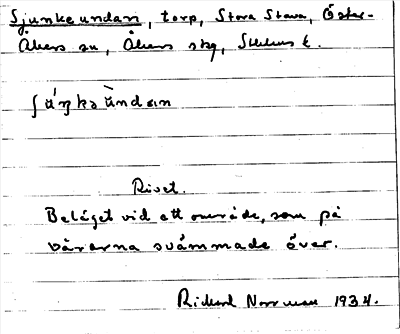 Sjunkeundan, torp, Stora Stava, Öster-
Åkers sn, Åkers skg, Sthlms l.
Rivet.
Beläget vid ett område, som på
vårarna svämmade över.
Rickard Norrman 1934.